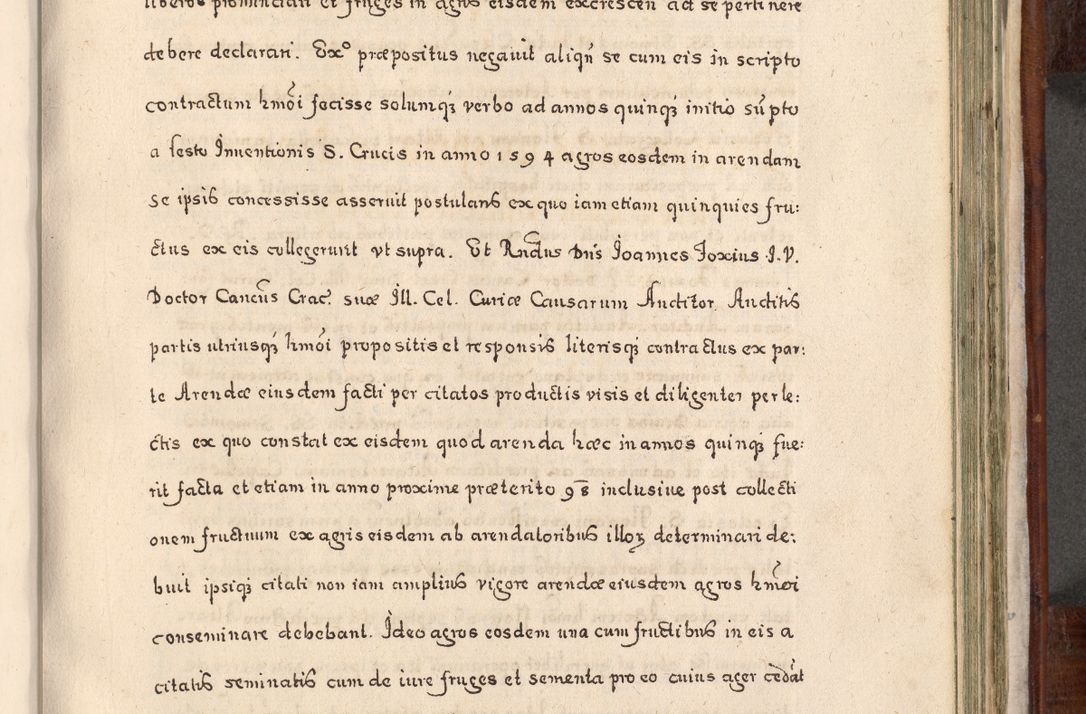 liberos pronunciari et fruges in agros eisdem excrescen ad se pertinere
debere declarari. Ex° præpositus negavit aliqũ se cum eis in scripto
contractum hmõi fecisse solumq; verbo ad annos quinq; initio sũpto
a festo Inventionis S. Crucis in anno 1594 agros eosdem in arendam
se ipsis concessisse asseruit postulans ex quo iam etiam quinquies fru:
ctus ex eis collegerunt vt supra. Et Rndus Dns Joannes Foxius I.V.
Doctor Cancus Crac. suæ Ill. Cel. Curiæ Causarum Auditor. Auditis
partis utriusq; hmõi propositis et responsis literisq; contractus ex par:
te Arendæ eiusdem facti per citatos productis visis et diligenter perle:
ctis ex quo constat ex eisdem quod arenda hæc in annos quinq; fue:
rit facta et etiam in anno proxime præterito 98 inclusiue post collecti
onem fructuum ex agris eisdem ab arendatoribus illoꝝ determinari de:
buit ipsiq; citati non iam amplius vigore arendæ eiusdem agros hmõi
conseminare debebant. Ideo agros eosdem una cum fructibus in eis a
citatis seminatis cum de iure fruges et sementa pro eo cuius ager cedat